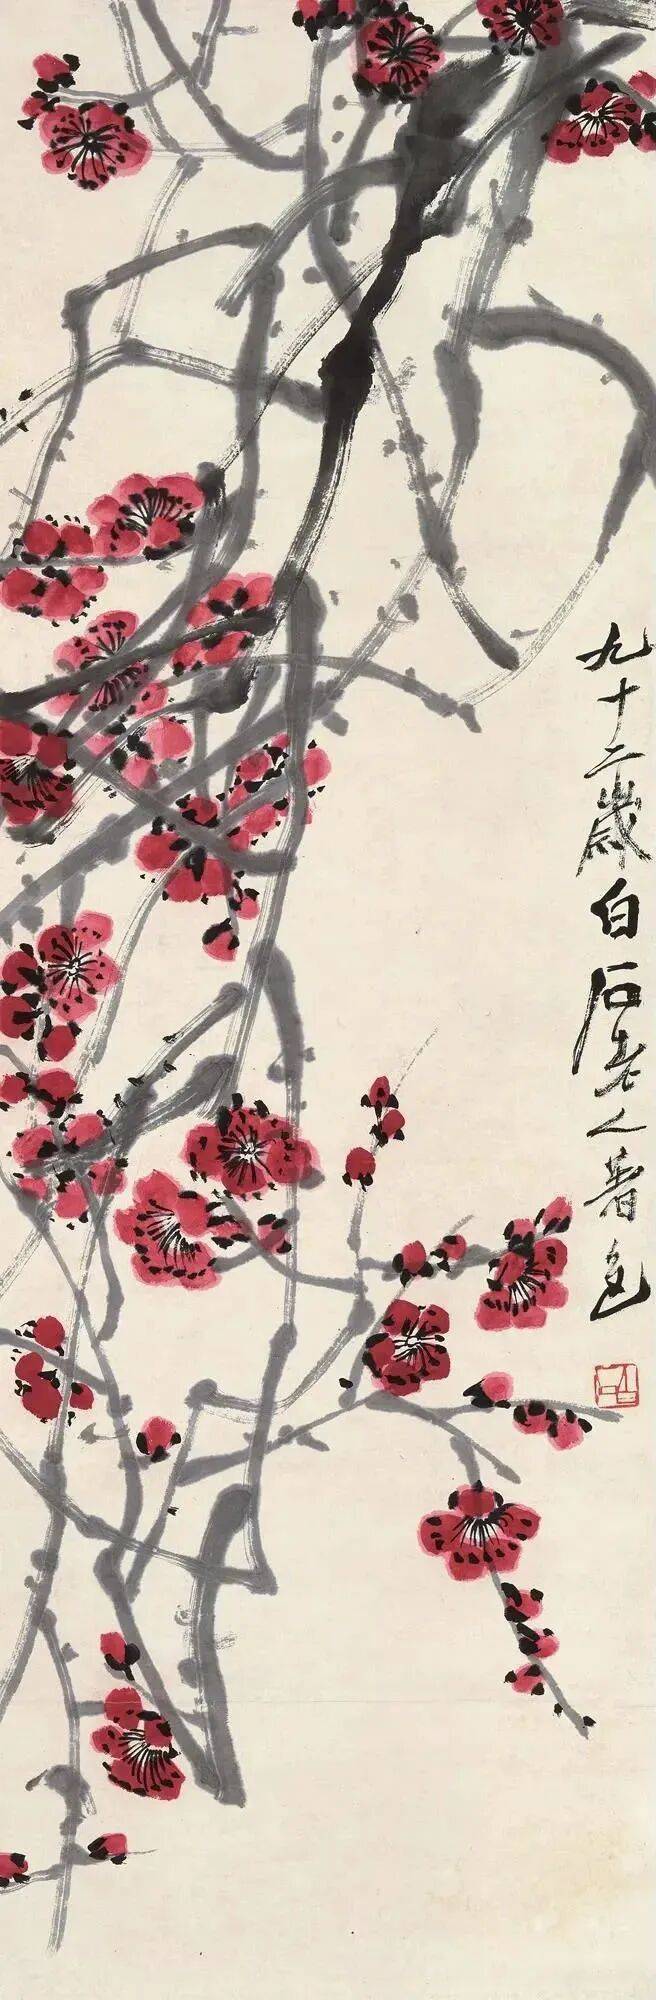 九十二歲白石老人著色